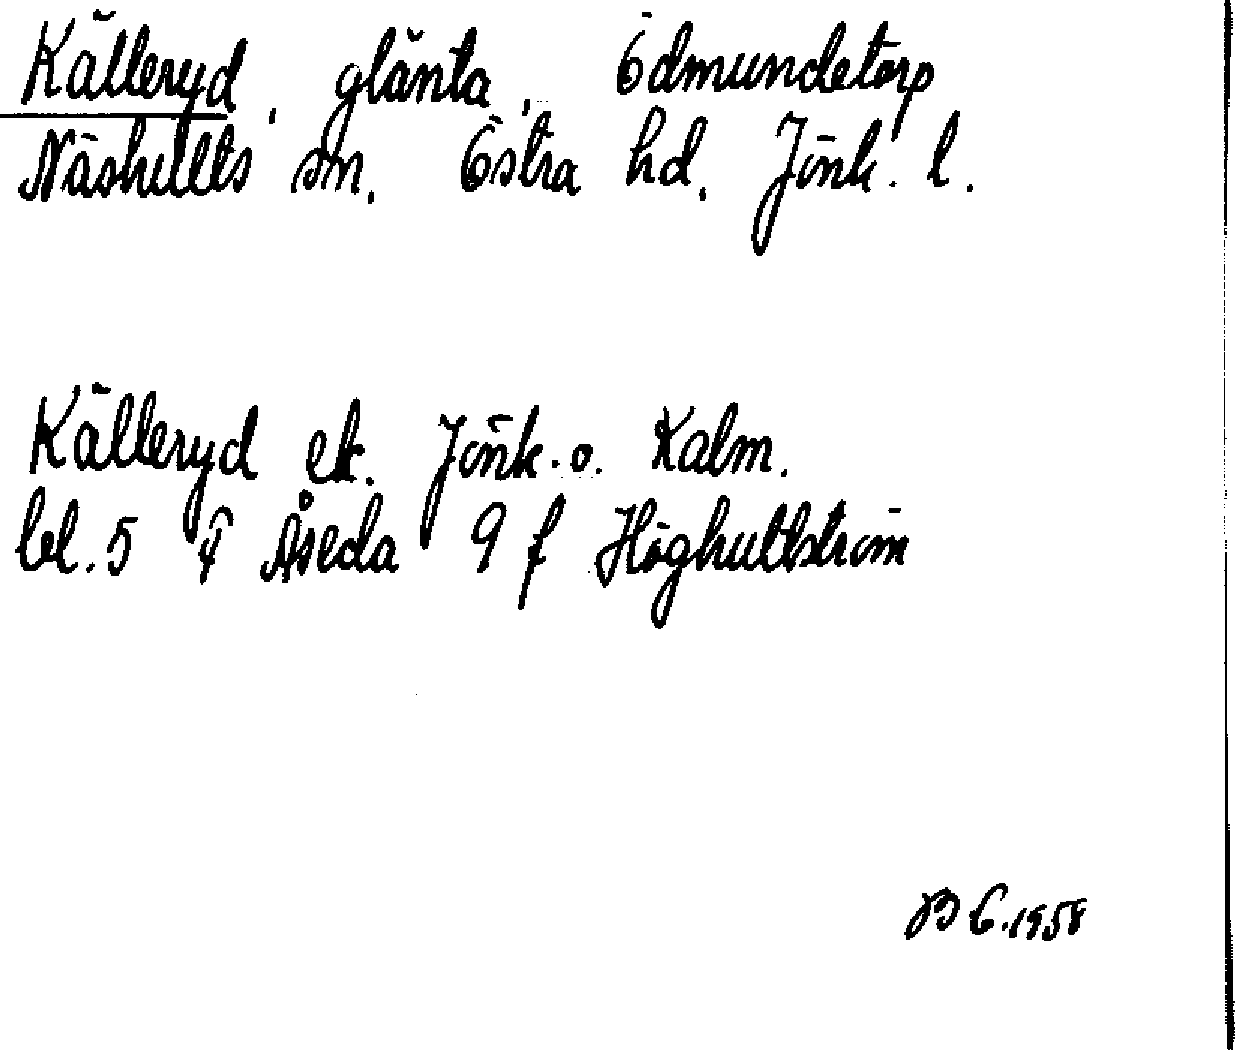 Källeryd, glänta, Ödmundetorp
Näshults sn. Östra hd. Jönk. l.
Källeryd ek. Jönk. o. Kalm.
bl. 5 Åseda 9 f Höghultström
1958